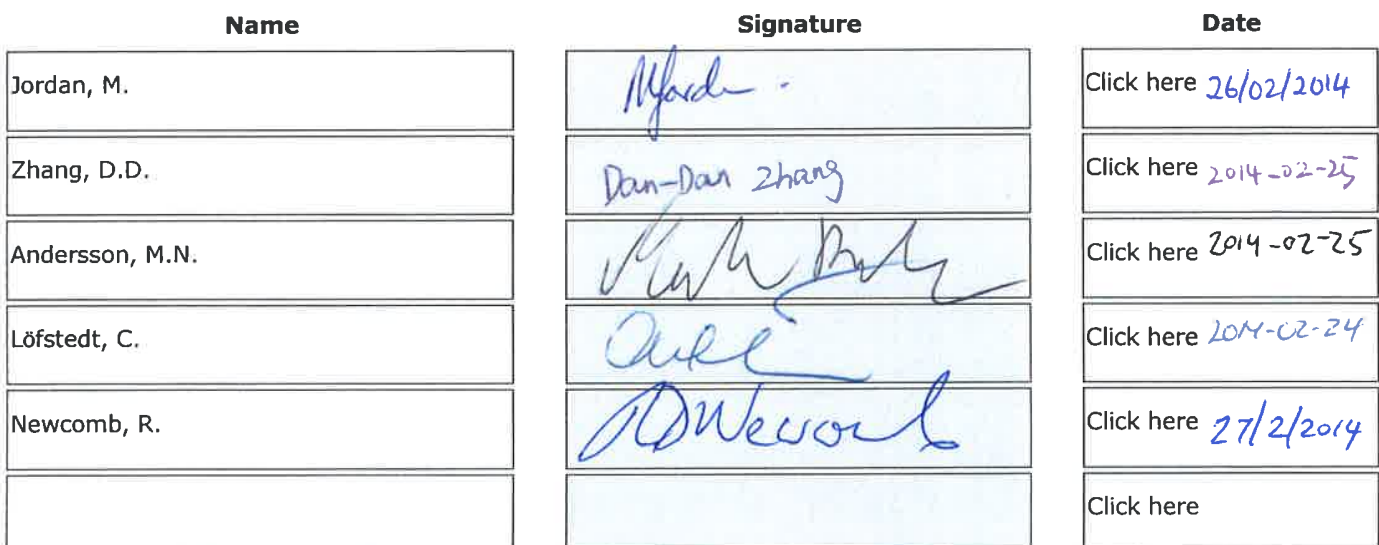 Name Signature Date
Jordan, M. MJorda. Click here 26/02/2014
Zhang, D.D. Dan-Dan Zhang Click here 2014-02-25
Andersson, M.N. Click here 2014-02-25
Löfstedt, C. Click here 2014-02-24
Newcomb, R. RDNewcomb Click here 27/2/2014
Click here